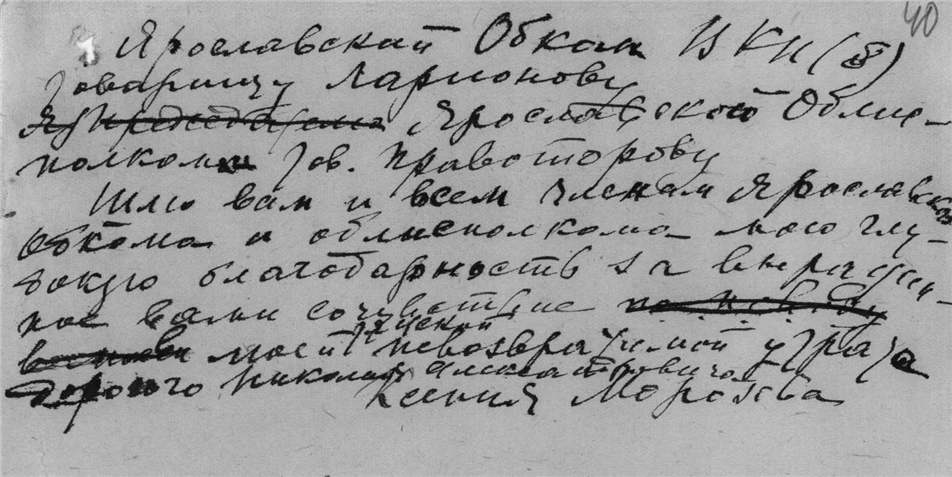 40
Ярославский Обком ВКП(б)
Товарищу Ларионову
Ярославской Облис-
полком Тов. Правоторову
Шлю вам и всем членам Ярославск
Обкома и облисполкома мою глу-
бокую благодарность за выражен-
ное вами сочувствие
моей тяжской невозвратимой утрате
дорогого Николая Александровича
Ксения Морозова